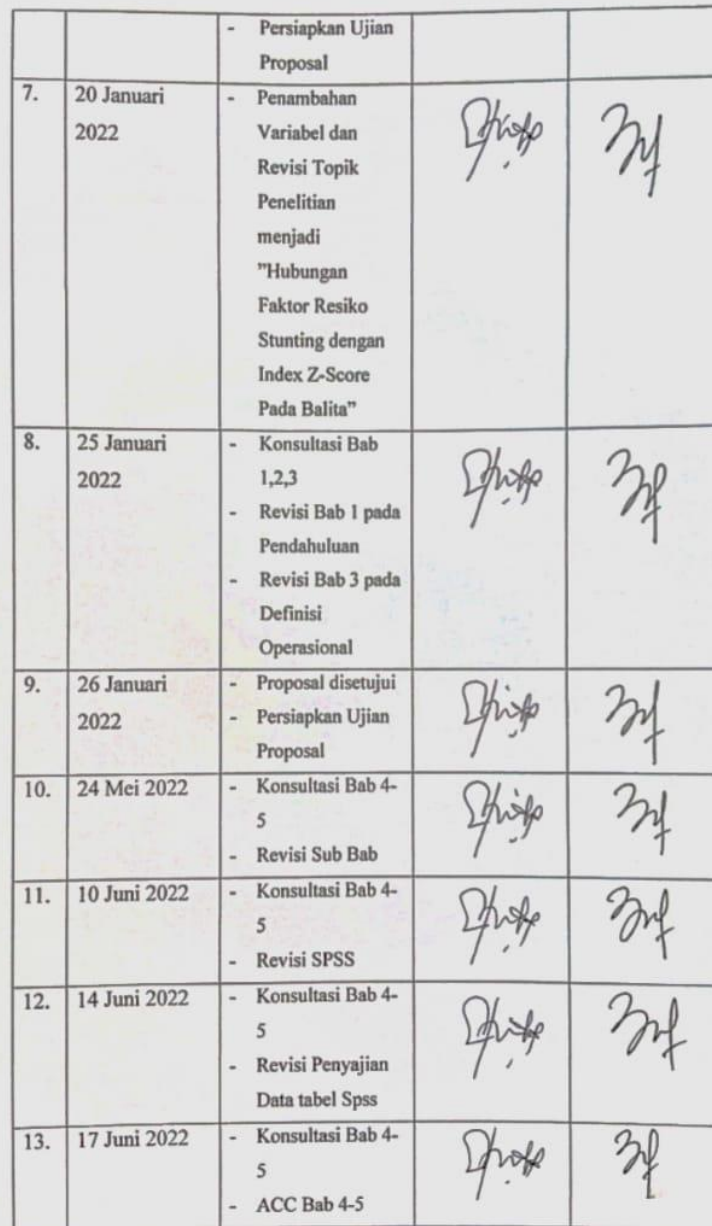 - Persiapkan Ujian
Proposal
7. 20 Januari - Penambahan
2022 Variabel dan
Revisi Topik
Penelitian
menjadi
"Hubungan
Faktor Resiko
Stunting dengan
Index Z-Score
Pada Balita"
8. 25 Januari - Konsultasi Bab
2022 1,2,3
- Revisi Bab 1 pada
Pendahuluan
- Revisi Bab 3 pada
Definisi
Operasional
9. 26 Januari - Proposal disetujui
2022 - Persiapkan Ujian
Proposal
10. 24 Mei 2022 - Konsultasi Bab 4-
5
- Revisi Sub Bab
11. 10 Juni 2022 - Konsultasi Bab 4-
5
- Revisi SPSS
12. 14 Juni 2022 - Konsultasi Bab 4-
5
- Revisi Penyajian
Data tabel Spss
13. 17 Juni 2022 - Konsultasi Bab 4-
5
- ACC Bab 4-5